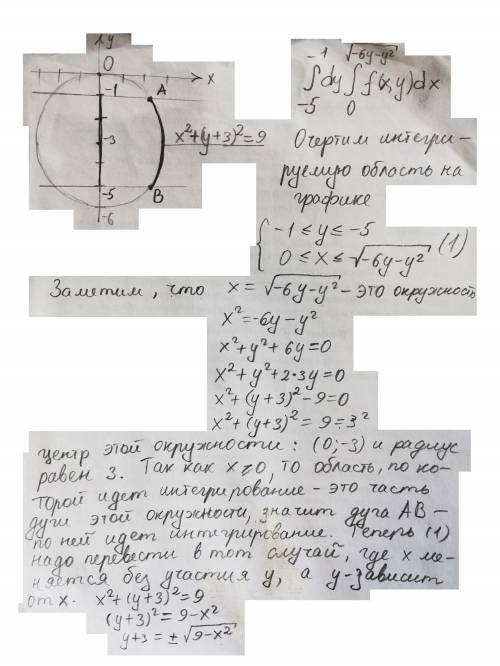 y
O
x
-1
A
-3
x²+(y+3)²=9
-5
B
-6
-1 √-6y-y²
∫dy ∫f(x,y)dx
-5 0
Очертим интегри-
руемую область на
графике
{ -1 ≤ y ≤ -5
0 ≤ x ≤ √-6y-y² (1)
Заметим, что x = √-6y-y² - это окружность
x²=-6y-y²
x²+y²+6y=0
x²+y²+2·3y=0
x²+(y+3)²-9=0
x²+(y+3)²=9=3²
центр этой окружности: (0;-3) и радиус
равен 3. Так как x≥0, то область, по ко-
торой идет интегрирование - это часть
дуги этой окружности, значит дуга AB -
по ней идет интегрирование. Теперь (1)
надо перевести в тот случай, где x ме-
няется без участия y, а y-зависит
от x. x²+(y+3)²=9
(y+3)²=9-x²
y+3=±√9-x²